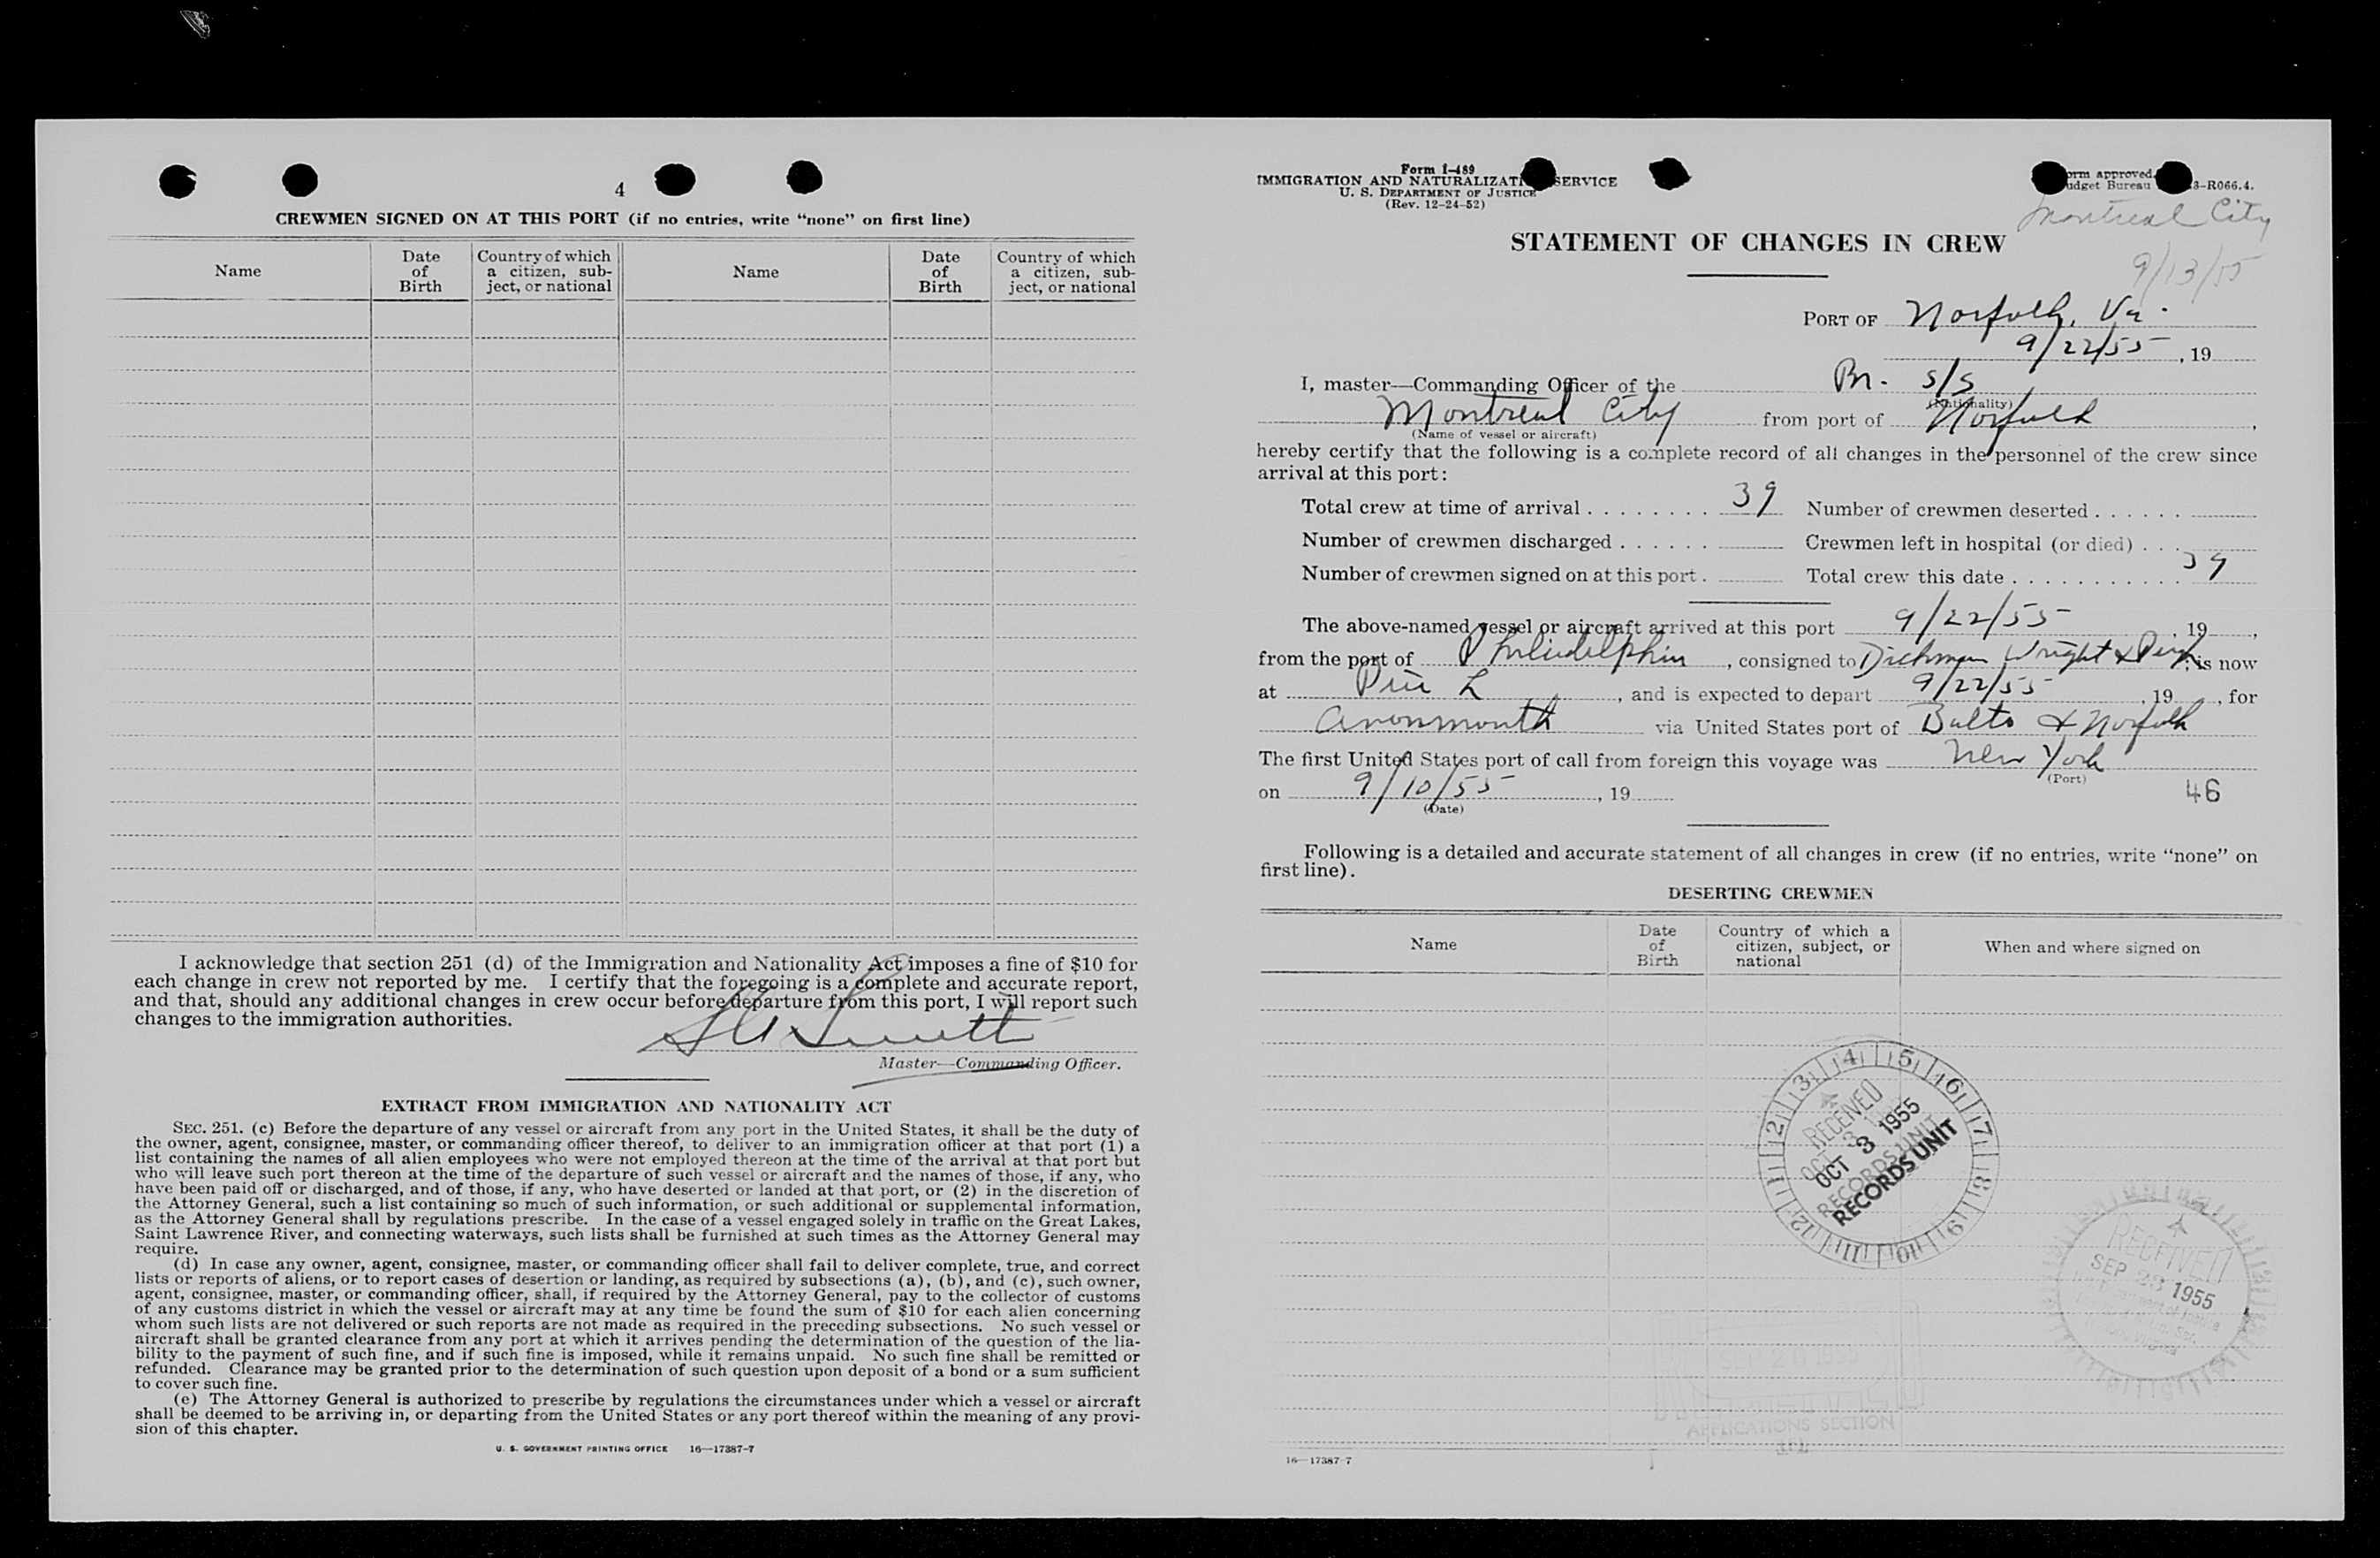 4
CREWMEN SIGNED ON AT THIS PORT (if no entries, write “none” on first line)
Name
Date of Birth
Country of which a citizen, subject, or national
Name
Date of Birth
Country of which a citizen, subject, or national
I acknowledge that section 251 (d) of the Immigration and Nationality Act imposes a fine of $10 for
each change in crew not reported by me. I certify that the foregoing is a complete and accurate report,
and that, should any additional changes in crew occur before departure from this port, I will report such
changes to the immigration authorities.
Master—Commanding Officer.
EXTRACT FROM IMMIGRATION AND NATIONALITY ACT
SEC. 251. (c) Before the departure of any vessel or aircraft from any port in the United States, it shall be the duty of
the owner, agent, consignee, master, or commanding officer thereof, to deliver to an immigration officer at that port (1) a
list containing the names of all alien employees who were not employed thereon at the time of the arrival at that port but
who will leave such port thereon at the time of the departure of such vessel or aircraft and the names of those, if any, who
have been paid off or discharged, and of those, if any, who have deserted or landed at that port, or (2) in the discretion of
the Attorney General, such a list containing so much of such information, or such additional or supplemental information,
as the Attorney General shall by regulations prescribe. In the case of a vessel engaged solely in traffic on the Great Lakes,
Saint Lawrence River, and connecting waterways, such lists shall be furnished at such times as the Attorney General may
require.
(d) In case any owner, agent, consignee, master, or commanding officer shall fail to deliver complete, true, and correct
lists or reports of aliens, or to report cases of desertion or landing, as required by subsections (a), (b), and (c), such owner,
agent, consignee, master, or commanding officer, shall, if required by the Attorney General, pay to the collector of customs
of any customs district in which the vessel or aircraft may at any time be found the sum of $10 for each alien concerning
whom such lists are not delivered or such reports are not made as required in the preceding subsections. No such vessel or
aircraft shall be granted clearance from any port at which it arrives pending the determination of the question of the lia-
bility to the payment of such fine, and if such fine is imposed, while it remains unpaid. No such fine shall be remitted or
refunded. Clearance may be granted prior to the determination of such question upon deposit of a bond or a sum sufficient
to cover such fine.
(e) The Attorney General is authorized to prescribe by regulations the circumstances under which a vessel or aircraft
shall be deemed to be arriving in, or departing from the United States or any port thereof within the meaning of any provi-
sion of this chapter.
U. S. GOVERNMENT PRINTING OFFICE 16—17387-7
Form I-489
IMMIGRATION AND NATURALIZATI SERVICE
U. S. DEPARTMENT OF JUSTICE
(Rev. 12-24-52)
orm approved.
udget Bureau 3-R066.4.
Montreal City
9/13/55
STATEMENT OF CHANGES IN CREW
PORT OF Norfolk, Va.
9/22/55, 19
I, master—Commanding Officer of the Br. s/s
(Nationality)
Montreal City from port of Norfolk,
(Name of vessel or aircraft)
hereby certify that the following is a complete record of all changes in the personnel of the crew since
arrival at this port:
Total crew at time of arrival 39 Number of crewmen deserted
Number of crewmen discharged Crewmen left in hospital (or died)
Number of crewmen signed on at this port. Total crew this date 39
The above-named vessel or aircraft arrived at this port 9/22/55, 19,
from the port of Philadelphia, consigned to Dichman Wright & Pugh, is now
at Pier L, and is expected to depart 9/22/55, 19, for
Avonmouth via United States port of Balto & Norfolk
The first United States port of call from foreign this voyage was New York
(Port)
on 9/10/55, 19
(Date)
46
Following is a detailed and accurate statement of all changes in crew (if no entries, write “none” on
first line).
DESERTING CREWMEN
Name
Date of Birth
Country of which a citizen, subject, or national
When and where signed on
RECEIVED
OCT 3 1955
RECORDS UNIT
RECEIVED
SEP 23 1955
APPLICATIONS SECTION
16—17387-7